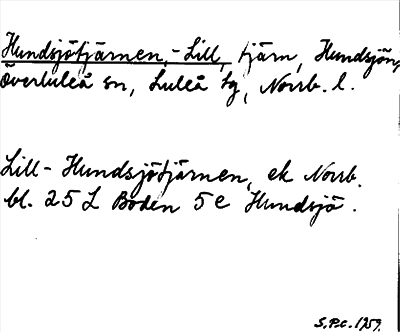 Hundsjötjärnen, -Lill, tjärn, Hundsjön,
Överluleå sn, Luleå tg, Norrb. l.
Lill-Hundsjötjärnen, ek Norrb.
bl. 25 L Boden 5 e Hundsjö.
S.P.c. 1959.